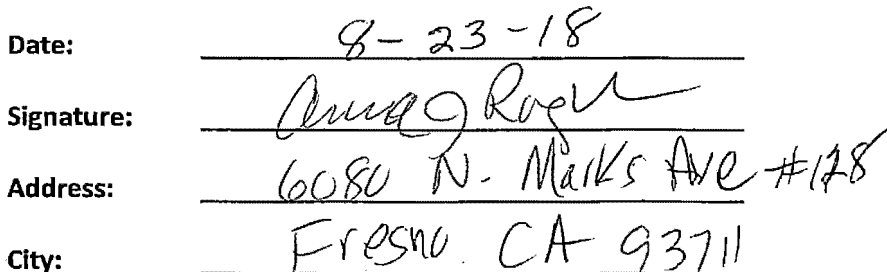 Date: 8-23-18
Signature:
Address: 6080 N. Marks Ave #128
City: Fresno CA 93711